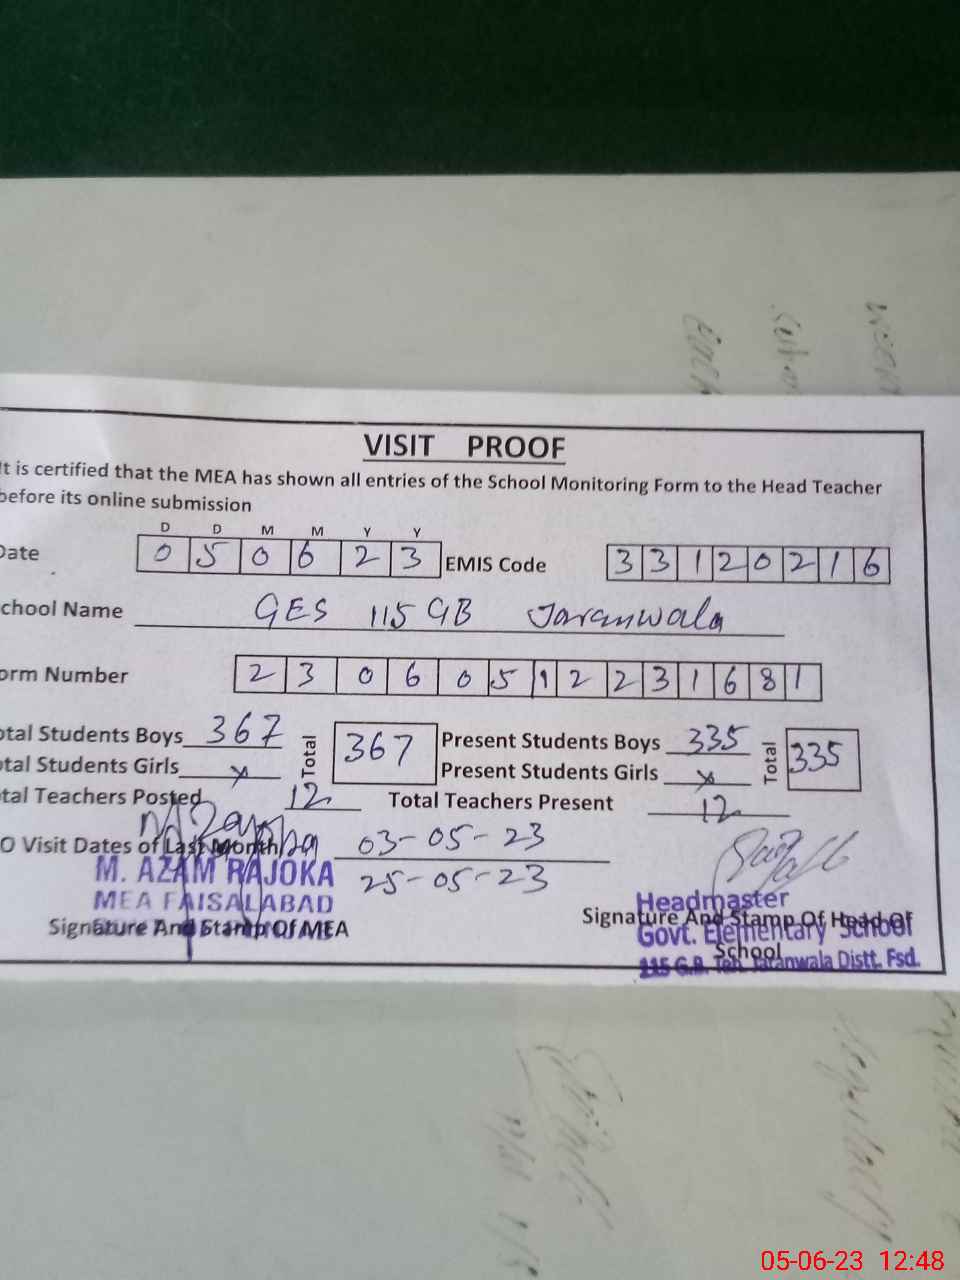 VISIT PROOF
It is certified that the MEA has shown all entries of the School Monitoring Form to the Head Teacher
before its online submission
D D M M Y Y
Date 0 5 0 6 2 3 EMIS Code 3 3 1 2 0 2 1 6
School Name GES 115 GB Jaranwala
orm Number 2 3 0 6 0 5 1 2 2 3 1 6 8 1
otal Students Boys 367 Total 367 Present Students Boys 335 Total 335
otal Students Girls x Present Students Girls x
otal Teachers Posted 12 Total Teachers Present 12
O Visit Dates of Last Month 03-05-23
25-05-23
M. AZAM RAJOKA
MEA FAISALABAD
Signature And Stamp Of MEA
Headmaster
Signature And Stamp Of Head Of
Govt. Elementary School
School
115 G.B. Teh. Jaranwala Distt. Fsd.
05-06-23 12:48